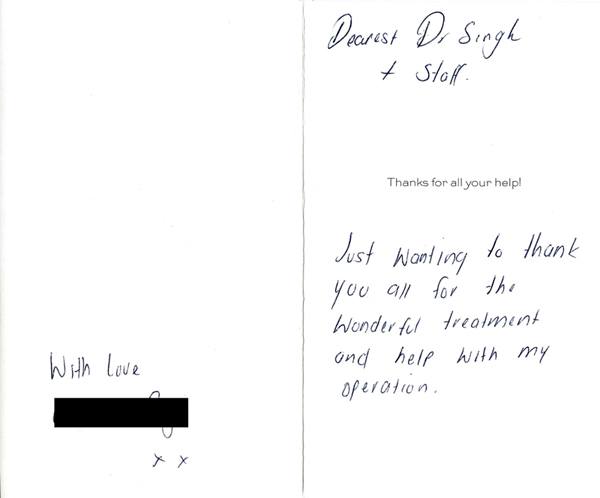 Dearest Dr Singh
+ Staff.
Thanks for all your help!
Just wanting to thank
you all for the
wonderful treatment
and help with my
operation.
With love
x x